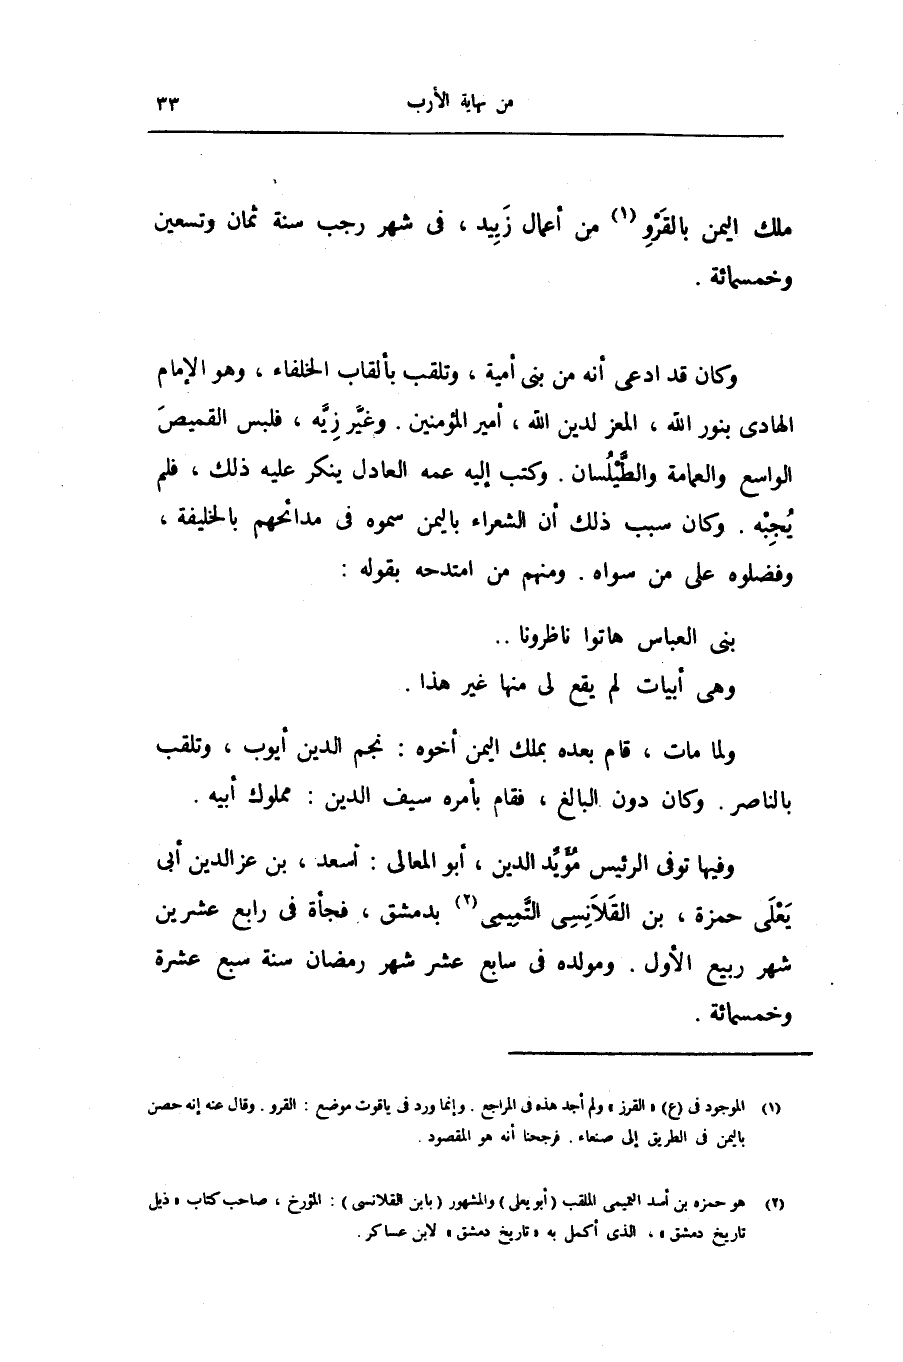 من نهاية الأرب ٣٣
ملك اليمن بالقَرْوِ (١) من أعمال زَبِيد ، فى شهر رجب سنة ثمان وتسعين
وخمسمائة .
وكان قد ادعى أنه من بنى أمية ، وتلقب بألقاب الخلفاء ، وهو الإمام
الهادى بنور الله ، المعز لدين الله ، أمير المؤمنين . وغيَّر زِيَّه ، فلبس القميصَ
الواسع والعمامة والطَّيْلُسان . وكتب إليه عمه العادل ينكر عليه ذلك ، فلم
يُجِبْه . وكان سبب ذلك أن الشعراء باليمن سموه فى مدائحهم بالخليفة ،
وفضلوه على من سواه . ومنهم من امتدحه بقوله :
بنى العباس هاتوا ناظرونا ..
وهى أبيات لم يقع لى منها غير هذا .
ولما مات ، قام بعده بملك اليمن أخوه : نجم الدين أيوب ، وتلقب
بالناصر . وكان دون البالغ ، فقام بأمره سيف الدين : مملوك أبيه .
وفيها توفى الرئيس مُؤَيَّد الدين ، أبو المعالى : أسعد ، بن عز الدين أبى
يَعْلَى حمزة ، بن القَلاَنِسِى التَّمِيمِى (٢) بدمشق ، فجأة فى رابع عشرين
شهر ربيع الأول . ومولده فى سابع عشر شهر رمضان سنة سبع عشرة
وخمسمائة .
(١) الموجود فى (ع) « القرز » ولم أجد هذه فى المراجع . وإنما ورد فى ياقوت موضع : القرو . وقال عنه إنه حصن
باليمن فى الطريق إلى صنعاء . فرجحنا أنه هو المقصود .
(٢) هو حمزه بن أسد التميمى الملقب ( أبو يعلى ) والمشهور ( بابن القلانسى ) : المؤرخ ، صاحب كتاب « ذيل
تاريخ دمشق » ، الذى أكمل به « تاريخ دمشق » لابن عساكر .